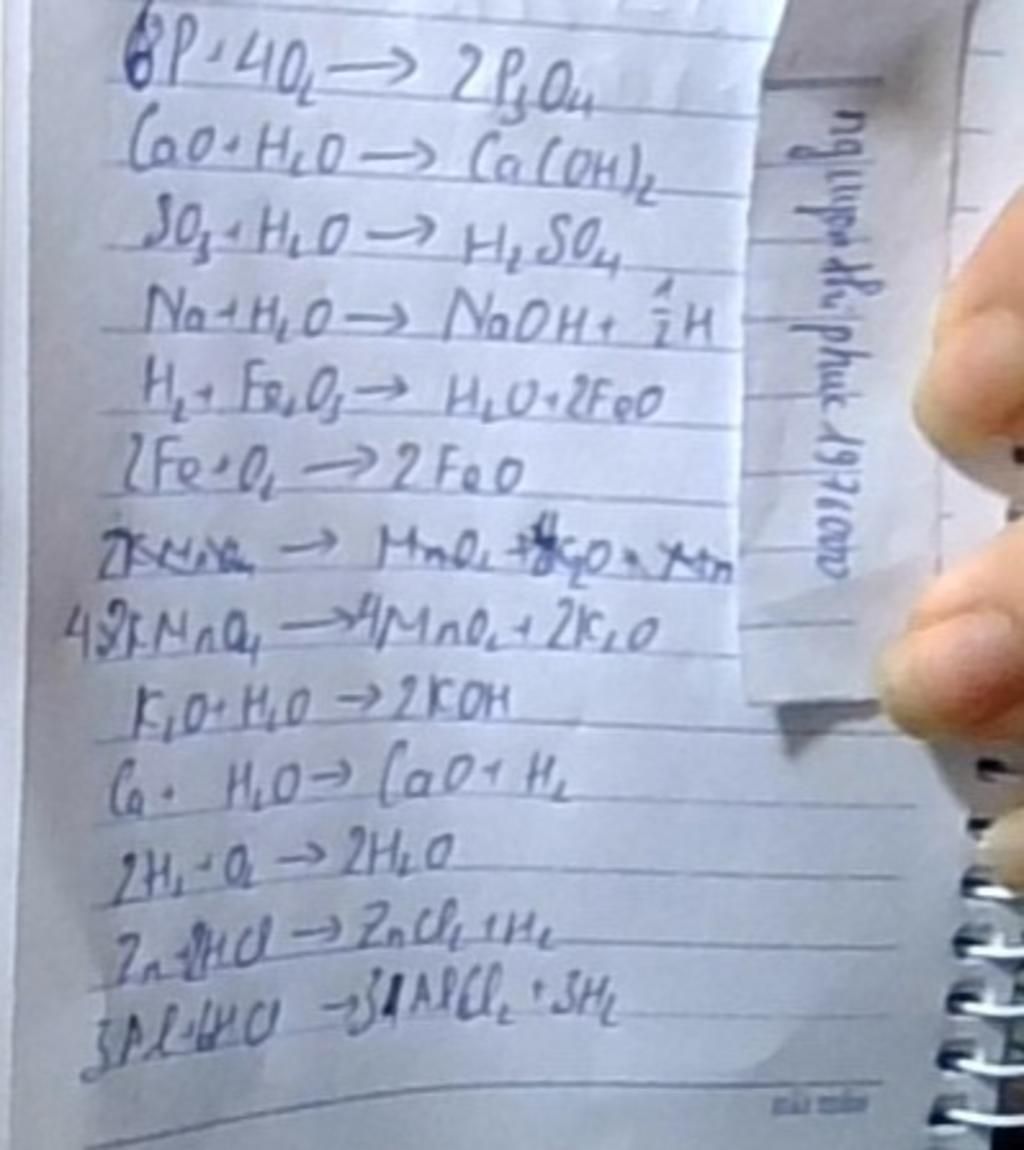 6P + 4O₂ → 2P₃O₄
CaO + H₂O → Ca(OH)₂
SO₃ + H₂O → H₂SO₄
Na + H₂O → NaOH + 1/2 H
H₂ + Fe₂O₃ → H₂O + 2FeO
2Fe + O₂ → 2FeO
→ MnO₂ +
4 KMnO₄ → 4MnO₂ + 2K₂O
K₂O + H₂O → 2KOH
Ca + H₂O → CaO + H₂
2H₂ + O₂ → 2H₂O
Zn + 2HCl → ZnCl₂ + H₂
3Al + 6HCl → 3AlCl₂ + 3H₂